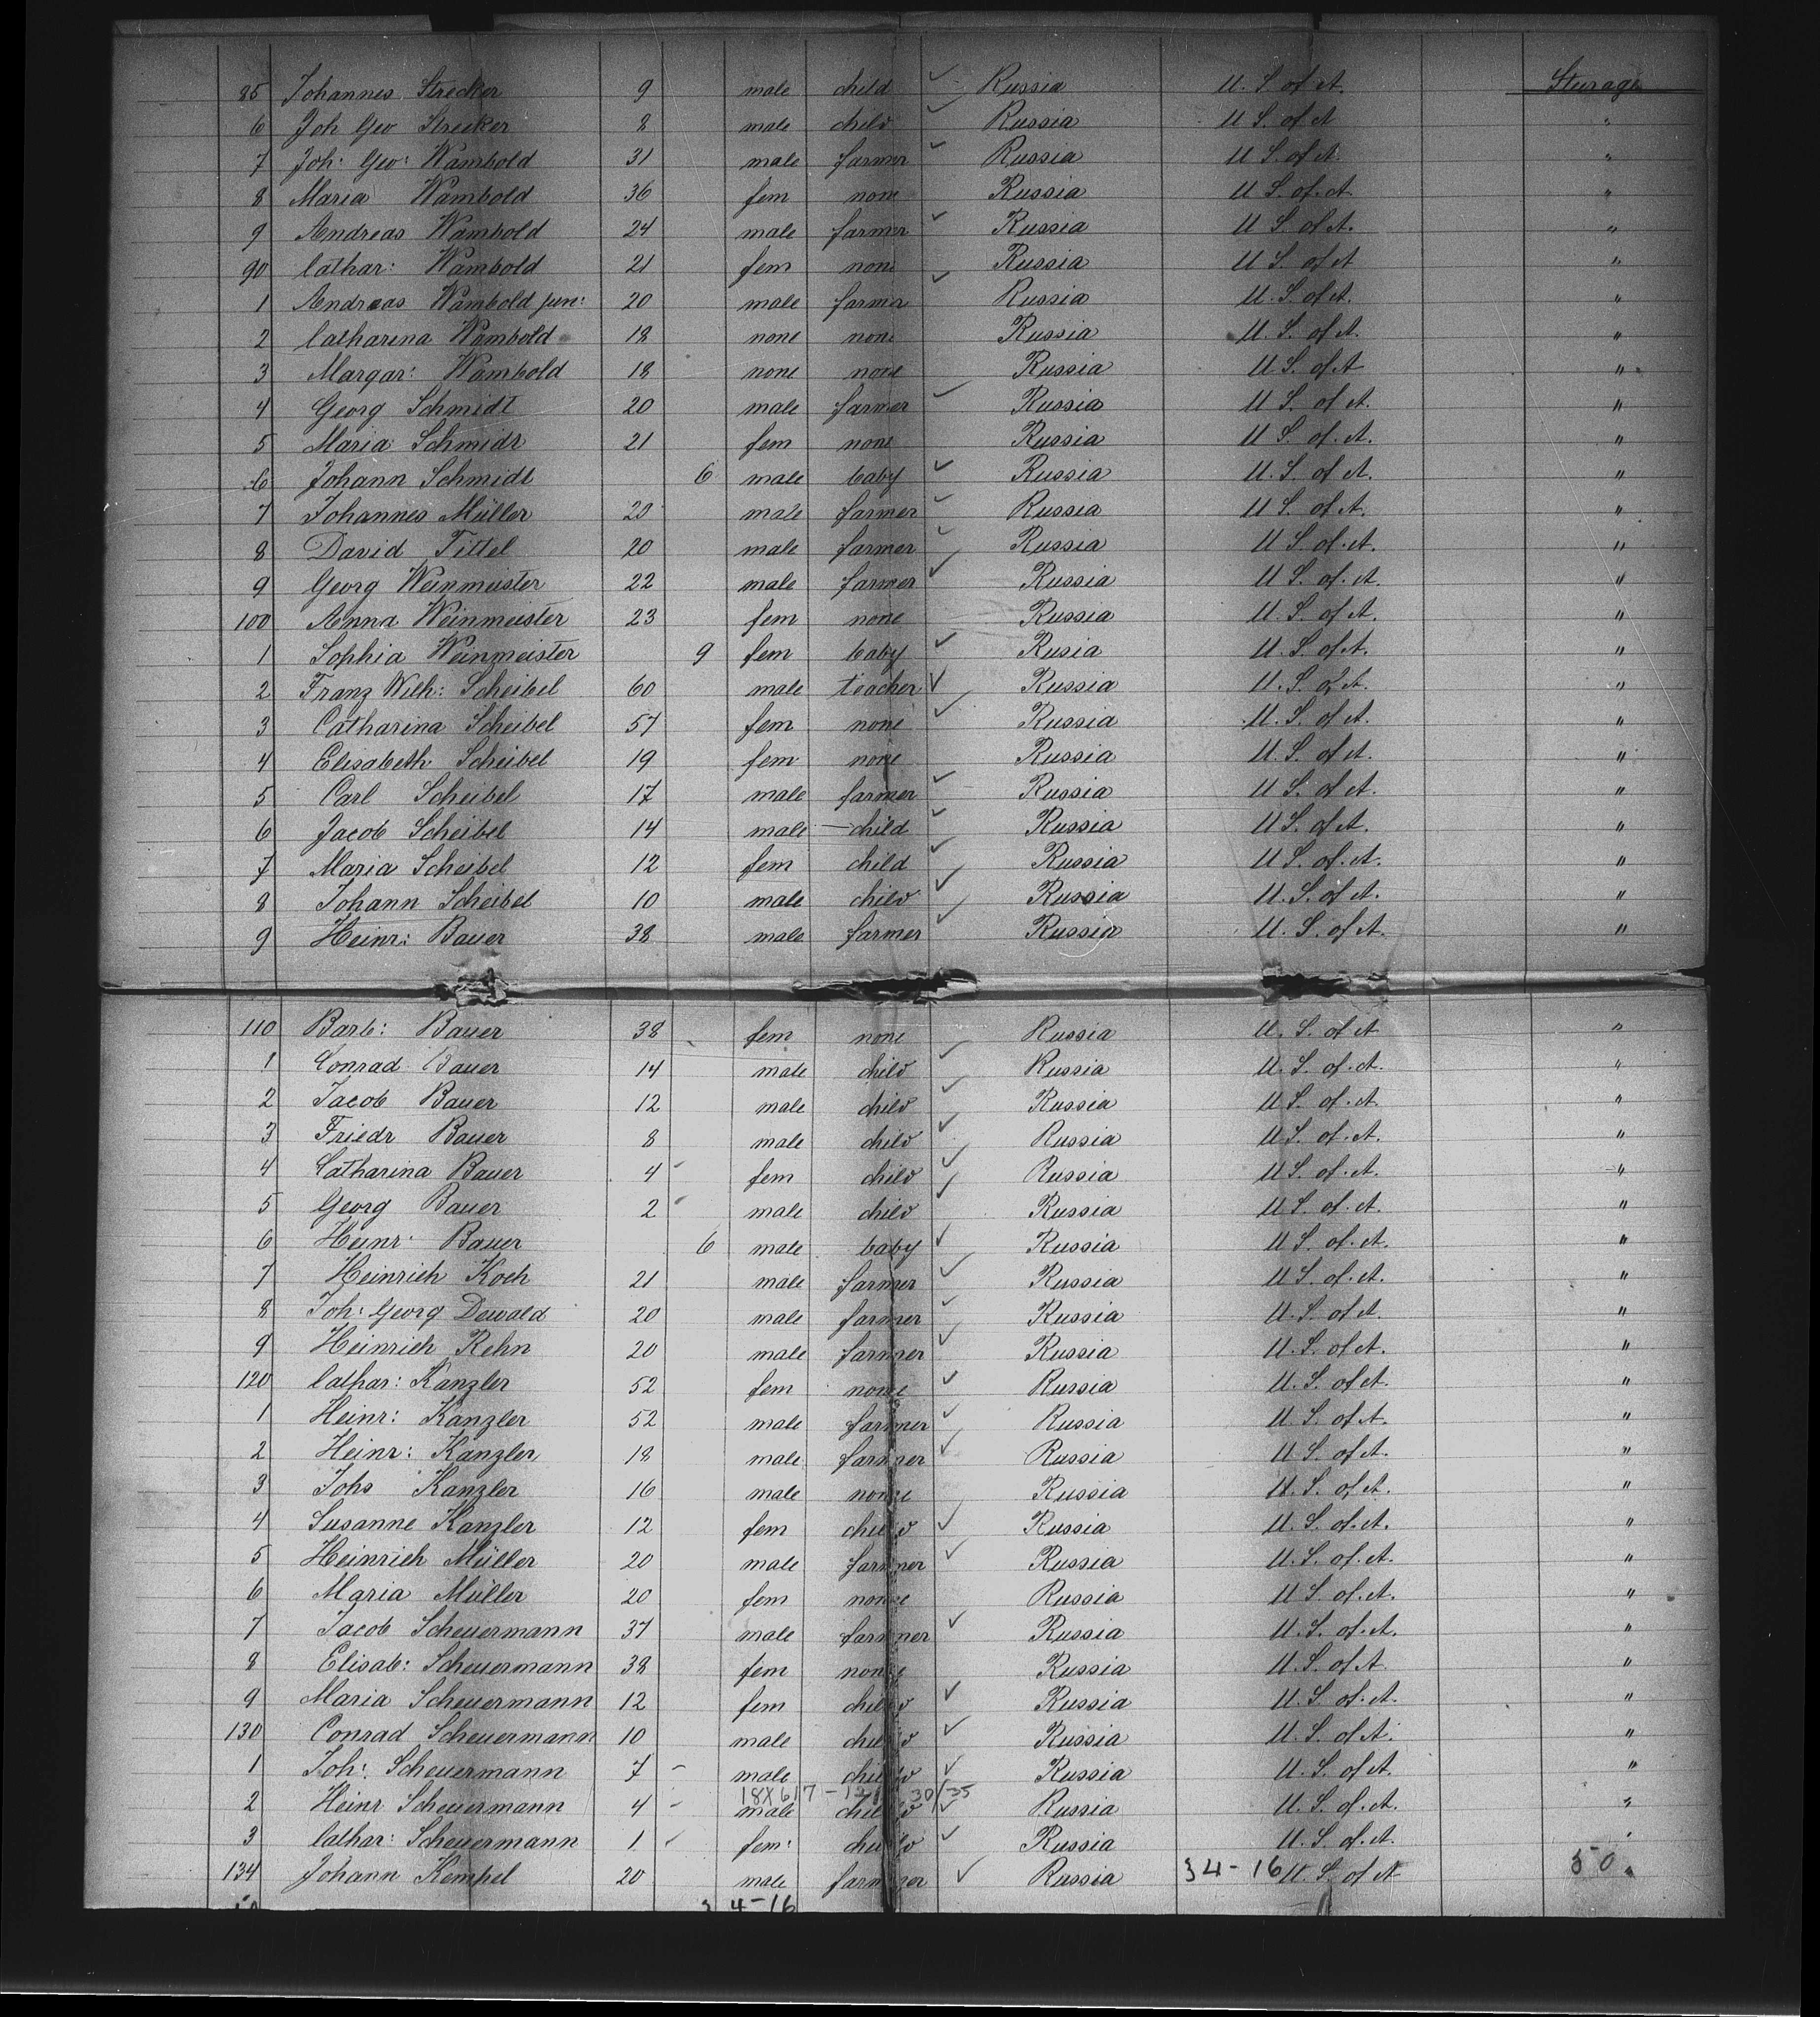 85 Johannes Strecker 9 male child Russia U. S. of A. Sturage
6 Joh Geo Strecker 8 male child Russia U S. of A "
7 Joh: Geo: Wambold 31 male farmer Russia U S. of A. "
8 Maria Wambold 36 fem none Russia U S. of. A "
9 Andreas Wambold 24 male farmer Russia U S. of A. "
90 Cathar: Wambold 21 fem none Russia U S. of A "
1 Andreas Wambold jun: 20 male farmer Russia U. S. of A. "
2 Catharina Wambold 18 none none Russia U. S. of A. "
3 Margar: Wambold 18 none none Russia U S. of A "
4 Georg Schmidt 20 male farmer Russia U S. of A. "
5 Maria Schmidt 21 fem none Russia U S. of. A. "
6 Johann Schmidt 6 male baby Russia U. S. of A. "
7 Johannes Müller 20 male farmer Russia U S. of A. "
8 David Tittel 20 male farmer Russia U S. of. A. "
9 Georg Weinmeister 22 male farmer Russia U S. of. A. "
100 Anna Weinmeister 23 fem none Russia U. S. of A. "
1 Sophia Weinmeister 9 fem baby Rusia U. S. of A. "
2 Franz Wilh: Scheibel 60 male teacher Russia U. S. of A. "
3 Catharina Scheibel 57 fem none Russia U. S. of A. "
4 Elisabeth Scheibel 19 fem none Russia U. S. of A. "
5 Carl Scheibel 17 male farmer Russia U S. of A. "
6 Jacob Scheibel 14 male child Russia U S. of A. "
7 Maria Scheibel 12 fem child Russia U S. of. A. "
8 Johann Scheibel 10 male child Russia U. S. of A. "
9 Heinr: Bauer 38 male farmer Russia U. S. of A. "
110 Barb: Bauer 38 fem none Russia U. S. of A "
1 Conrad Bauer 14 male child Russia U. S. of. A. "
2 Jacob Bauer 12 male child Russia U S. of. A. "
3 Friedr Bauer 8 male child Russia U S. of. A. "
4 Catharina Bauer 4 fem child Russia U S. of. A. "
5 Georg Bauer 2 male child Russia U S. of. A. "
6 Heinr. Bauer 6 male baby Russia U S. of. A. "
7 Heinrich Koch 21 male farmer Russia U S. of. A. "
8 Joh: Georg Dewald 20 male farmer Russia U. S. of A "
9 Heinrich Rehn 20 male farmer Russia U. S. of A. "
120 Cathar: Kanzler 52 fem none Russia U. S. of A. "
1 Heinr: Kanzler 52 male farmer Russia U. S. of A. "
2 Heinr: Kanzler 18 male farmer Russia U S. of A. "
3 Johs Kanzler 16 male none Russia U. S. of A. "
4 Susanne Kanzler 12 fem child Russia U. S. of. A. "
5 Heinrich Müller 20 male farmer Russia U. S. of. A. "
6 Maria Müller 20 fem none Russia U S. of. A. "
7 Jacob Scheuermann 37 male farmer Russia U. S. of. A. "
8 Elisab: Scheuermann 38 fem none Russia U. S. of A "
9 Maria Scheuermann 12 fem child Russia U. S. of. A. "
130 Conrad Scheuermann 10 male child Russia U. S. of A. "
1 Joh: Scheuermann 7 male child Russia U. S. of A. "
2 Heinr Scheuermann 4 male child Russia U. S. of. A. "
3 Cathar: Scheuermann 1 fem: child Russia U. S. of. A. "
134 Johann Kempel 20 male farmer Russia 34-16 U. S. of A 50 "
34-16